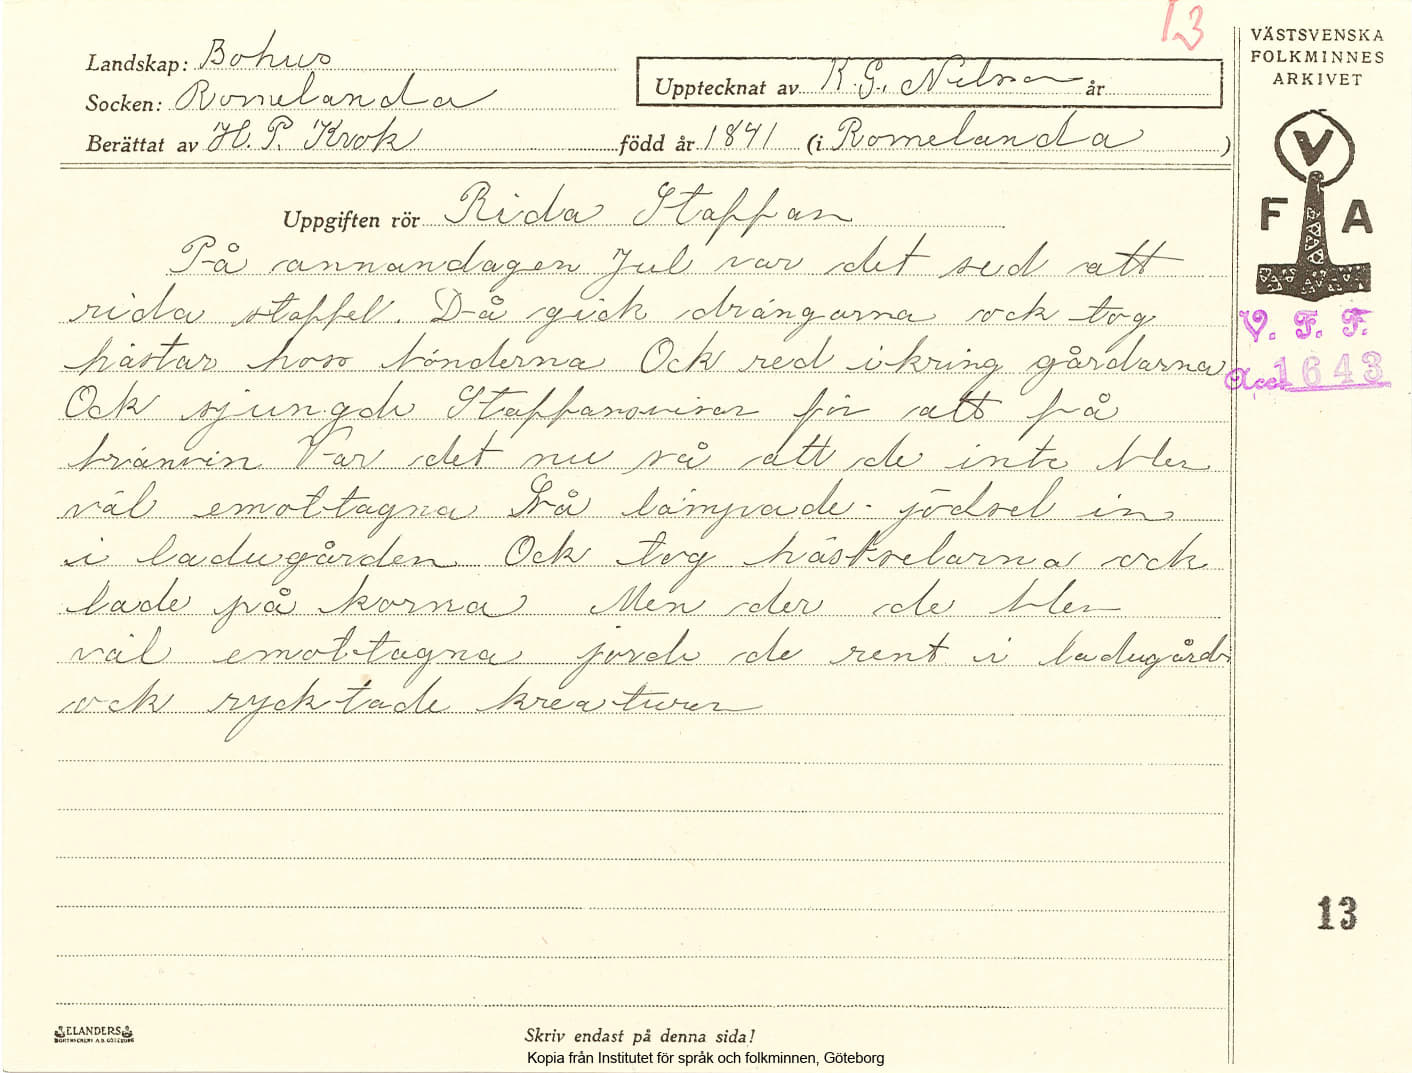 13
VÄSTSVENSKA
FOLKMINNES
ARKIVET
Landskap: Bohus
Upptecknat av K. G. Nilson år
Socken: Romelanda
Berättat av H. P. Krok född år 1841 (i Romelanda )
V
F A
Uppgiften rör Rida Staffan
På annandagen Jul var det sed att
rida staffel. Då gick drängarna ock tog
hästar hoss bönderna Ock red ikring gårdarna
Ock sjungde Staffansvisor för att få
bränvin Var det nu så att de inte blev
väl emottagna Då lämpade jödsel in
i ladugården Ock tog hästselarna ock
lade på korna Men der de blev
väl emottagna jorde de rent i ladugårdn
ock rycktade kreaturen
V. F. F.
Acc. 1643
13
ELANDERS
BOKTRYCKERI A.B. GÖTEBORG
Skriv endast på denna sida!
Kopia från Institutet för språk och folkminnen, Göteborg